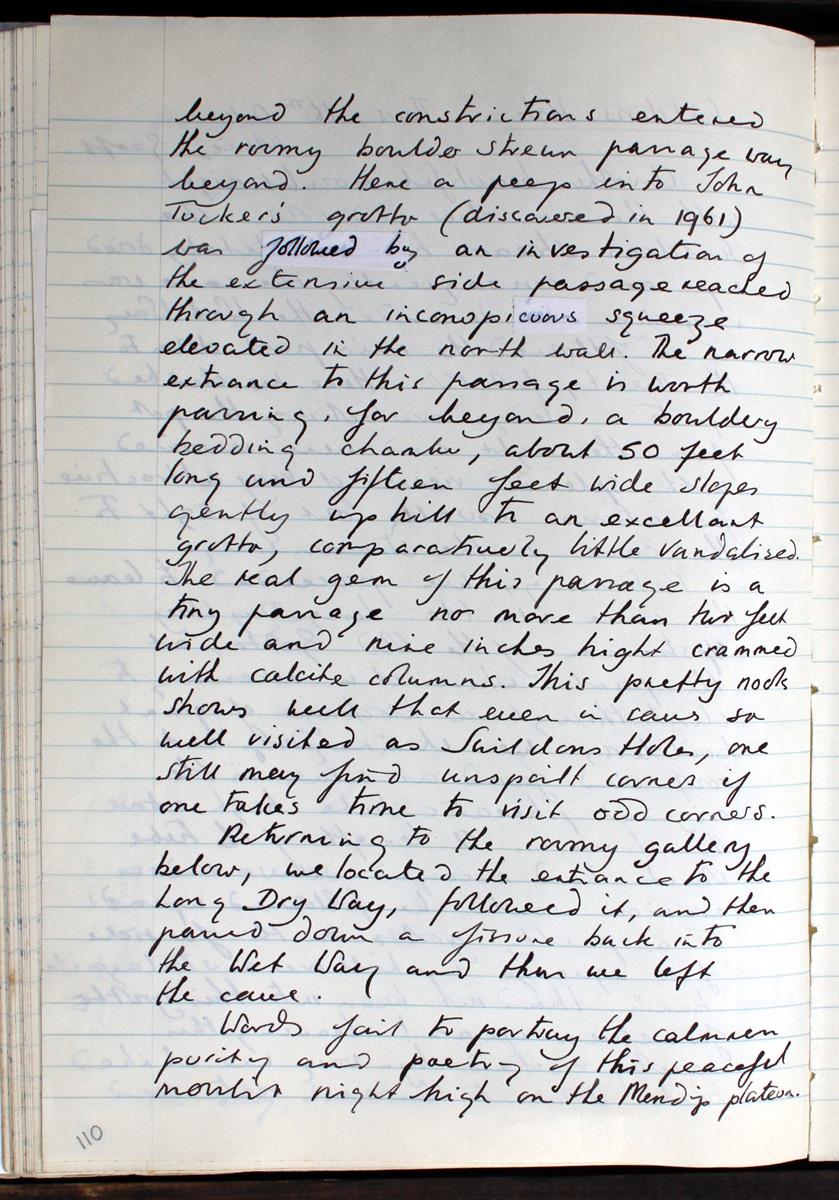 beyond the constrictions entered
the roomy boulder strewn passage way
beyond. Here a peep into John
Tucker's grotto (discovered in 1961)
was followed by an investigation of
the extensive side passage reached
through an inconspicuous squeeze
elevated in the north wall. The narrow
extrance to this passage is worth
passing, for beyond, a bouldery
bedding chamber, about 50 feet
long and fifteen feet wide slopes
gently uphill to an excellant
grotto, comparatively little vandalised.
The real gem of this passage is a
tiny passage no more than two feet
wide and nine inches hight crammed
with calcite columns. This pretty nook
shows well that even in caves so
well visited as Swildons Holes, one
still may find unspoilt corners if
one takes time to visit odd corners.
Returning to the roomy gallery
below, we located the entrance to the
Long Dry Way, followed it, and then
passed down a fissure back into
the Wet Way and then we left
the cave.
Words fail to portray the calmness
purity and poetry of this peaceful
moonlit night high on the Mendip plateau.
110